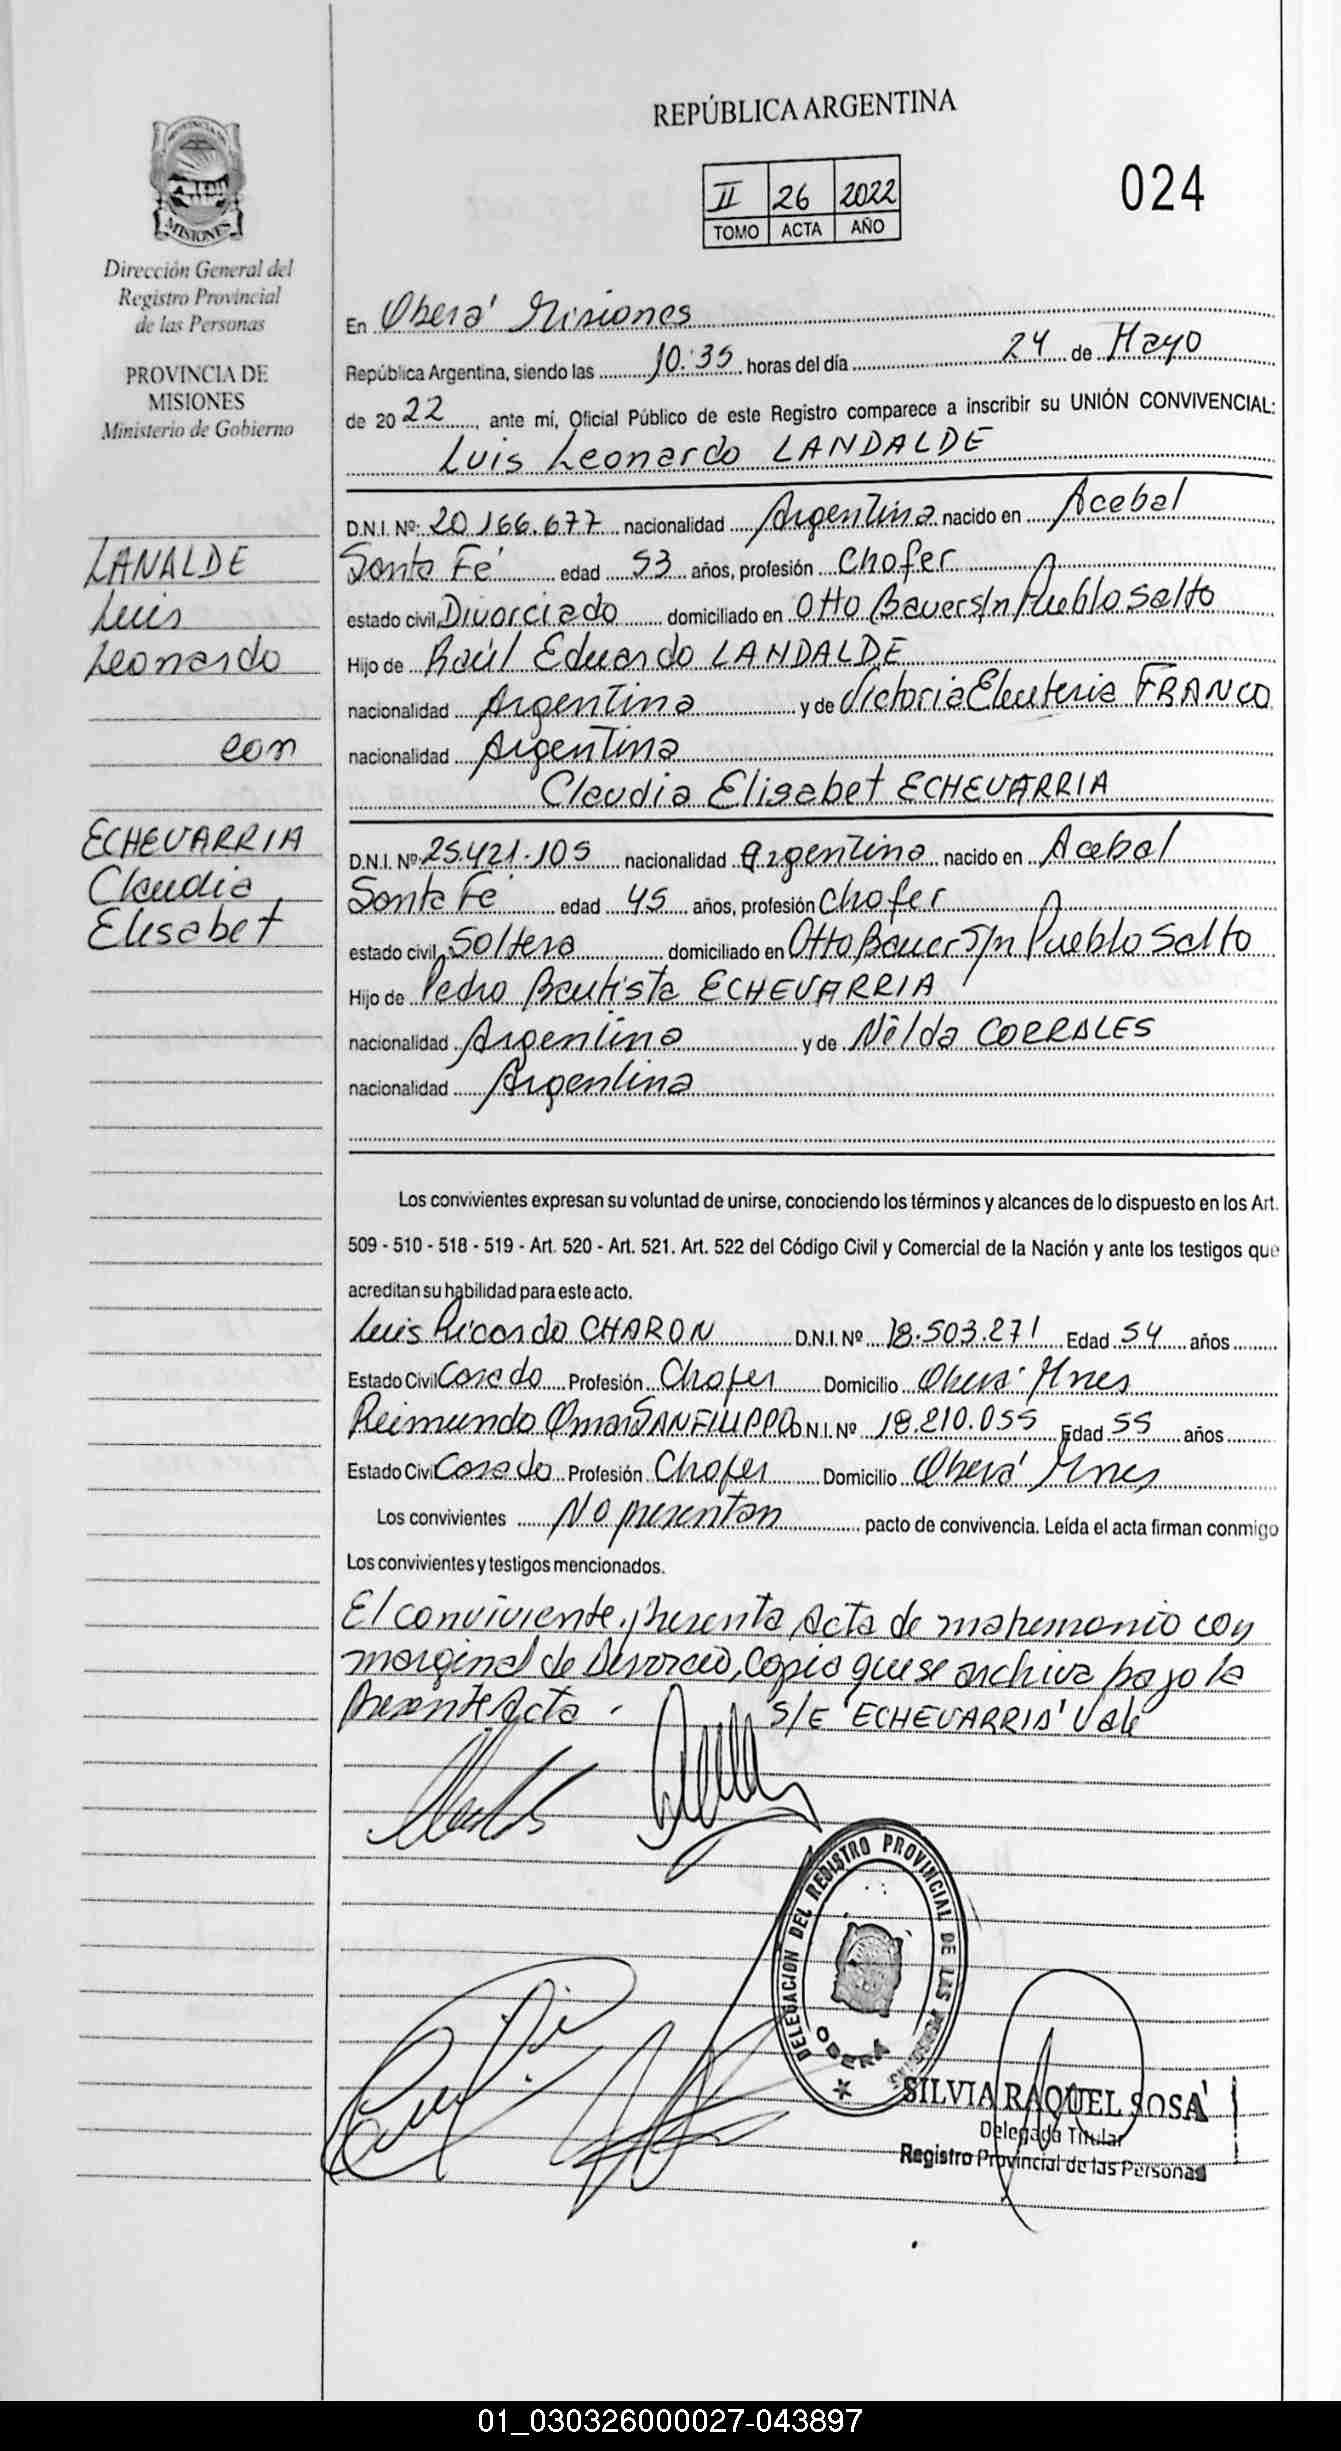 REPÚBLICA ARGENTINA
II 26 2022
TOMO ACTA AÑO
024
PROVINCIA DE
MISIONES
Dirección General del
Registro Provincial
de las Personas
PROVINCIA DE
MISIONES
Ministerio de Gobierno
LANALDE
Luis
Leonardo
con
ECHEVARRIA
Claudia
Elisabet
En Oberá Misiones
República Argentina, siendo las 10:35 horas del día 24 de Mayo
de 2022, ante mí, Oficial Público de este Registro comparece a inscribir su UNIÓN CONVIVENCIAL:
Luis Leonardo LANDALDE
D.N.I. Nº: 20.166.677 nacionalidad Argentina nacido en Acebal
Santa Fé edad 53 años, profesión Chofer
estado civil Divorciado domiciliado en Otto Bauer S/n Pueblo Salto
Hijo de Raúl Eduardo LANDALDE
nacionalidad Argentina y de Victoria Eleuteria FRANCO
nacionalidad Argentina
Claudia Elisabet ECHEVARRIA
D.N.I. Nº 25.421.105 nacionalidad argentina nacido en Acebal
Santa Fé edad 45 años, profesión Chofer
estado civil Soltera domiciliado en Otto Bauer S/n Pueblo Salto
Hijo de Pedro Bautista ECHEVARRIA
nacionalidad Argentina y de Nélda CORRALES
nacionalidad Argentina
Los convivientes expresan su voluntad de unirse, conociendo los términos y alcances de lo dispuesto en los Art.
509 - 510 - 518 - 519 - Art. 520 - Art. 521. Art. 522 del Código Civil y Comercial de la Nación y ante los testigos que
acreditan su habilidad para este acto.
Luis Ricardo CHARON D.N.I. Nº 18.503.271 Edad 54 años
Estado Civil Casado Profesión Chofer Domicilio Oberá Mnes
Reimundo Omar SANFILIPPO D.N.I. Nº 18.210.055 Edad 55 años
Estado Civil Casado Profesión Chofer Domicilio Oberá Mnes
Los convivientes No presentan pacto de convivencia. Leída el acta firman conmigo
Los convivientes y testigos mencionados.
El conviviente, presenta Acta de matrimonio con
marginal de Divorcio, Copia que se archiva bajo la
presente Acta. S/E "ECHEVARRIA" Vale
DELEGACION DEL REGISTRO PROVINCIAL DE LAS PERSONAS
OBERÁ
SILVIA RAQUEL SOSA
Delegada Titular
Registro Provincial de las Personas
01_030326000027-043897